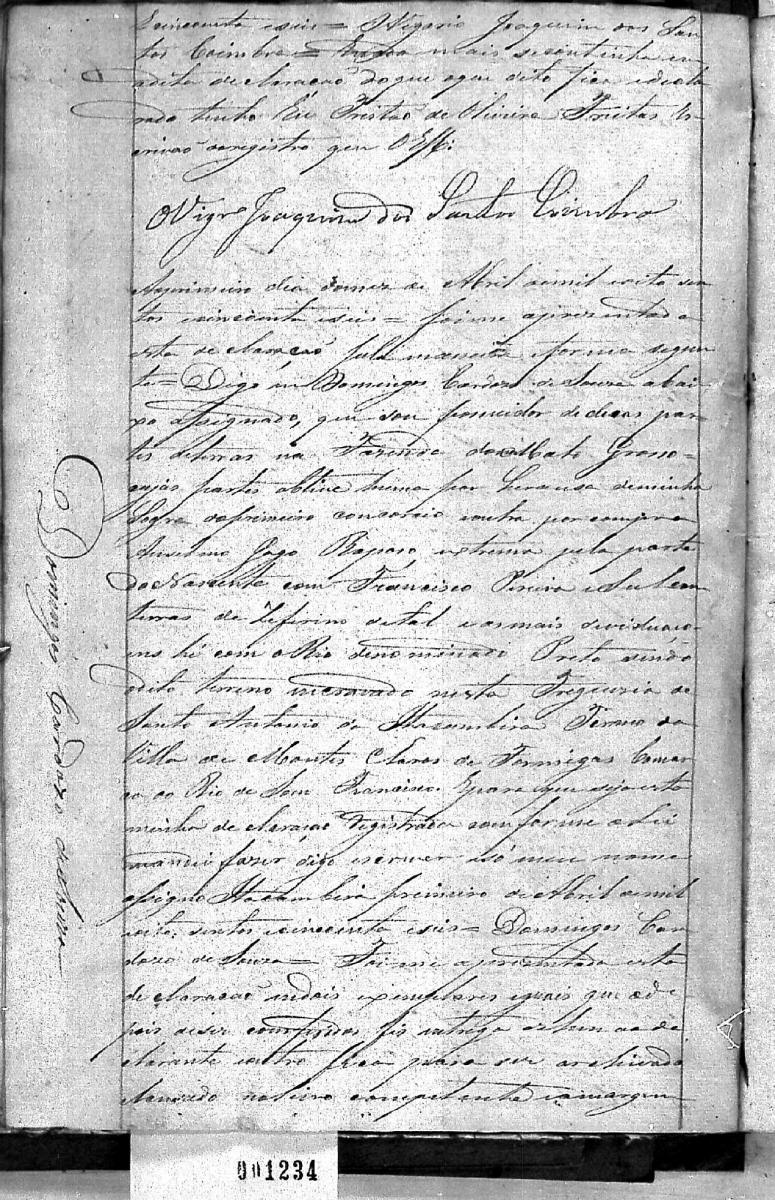 Cincoenta e seis = O Vigario Joaquim dos San
tos Coimbra = mais se continha em
adita declaração do que aqui dito fica e decla
rado tenho Eu Tristão de Oliveira Freitas Es
crivão do registro que O Esc.
O Vigrº Joaquim dos Santos Coimbra
Aoprimeiro dia domez de Abril de mil oito sen
tos e cincoenta e seis = foi me aprezentado
esta declaração pela maneira e forma seguin
te = Digo eu Domingos Cardozo de Souza abai
xo assignado, que sou possuidor de duas par
tes de terras na Fazenda do Mato Grosso
cujas partes obtive huma por heransa de minha
Sogra do primeiro consorcio e outra por compra
Anselmo Raposo e extrema pela parte
do Nascente com Francisco Pereira e Sul com
terras de Zeferino de tal e as mais devizaço
ens hé com o Rio denominado Preto sendo
o dito terreno incravado nesta Freguezia de
Santo Antonio da Itacambira Termo da
Villa de Montes Claros de Formigas Comar
ca do Rio de Sam Francisco. E para que seja esta
minha declaração registrada comforme a Lei
mandei fazer digo escrever e só meu nome
assigno Itacambira primeiro de Abril de mil
oito sentos e cincoenta e seis = Domingos Car
dozo de Souza = Foi me aprezentada esta
declaração em dois exemplares iguais que de
pois de ser comferidos fis entrega de hum ao de
clarante e outro fica para ser archivado
lansado no livro competente e a margem
Domingos Cardozo de Souza
001234